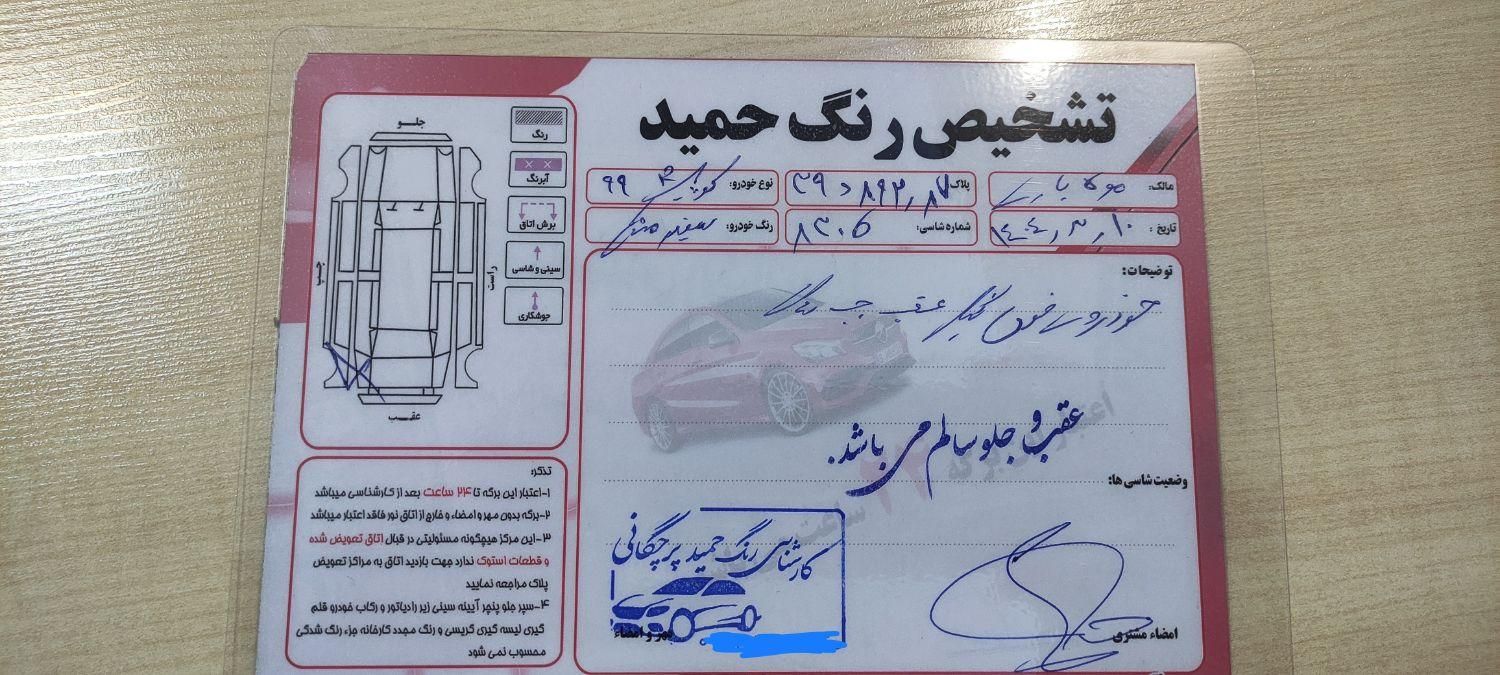 تشخیص رنگ حمید
مالک:
پلاک: ۳۹ د ۸۹۲ ر ۸۷
نوع خودرو: کوییک ۹۹
تاریخ: ۱۴۰۴٫۳٫۱۰
شماره شاسی: ۸۳۰۵
رنگ خودرو: سفید
توضیحات:
خودرو فوق گلگیر عقب چپ رنگ
عقب و جلو سالم می باشد.
وضعیت شاسی ها:
کارشناسی رنگ حمید پرچگانی
مهر و امضاء
امضاء مشتری
جلو
رنگ
آبرنگ
برش اتاق
سینی و شاسی
جوشکاری
چپ
راست
عقب
تذکر:
۱-اعتبار این برگه تا ۲۴ ساعت بعد از کارشناسی میباشد
۲-برگه بدون مهر و امضاء و خارج از اتاق نور فاقد اعتبار میباشد
۳-این مرکز هیچگونه مسئولیتی در قبال اتاق تعویض شده
و قطعات استوک ندارد جهت بازدید اتاق به مراکز تعویض
پلاک مراجعه نمایید
۴-سپر جلو پنچر آیینه سینی زیر رادیاتور و رکاب خودرو قلم
گیری لیسه گیری گریسی و رنگ مجدد کارخانه جزء رنگ شدگی
محسوب نمی شود